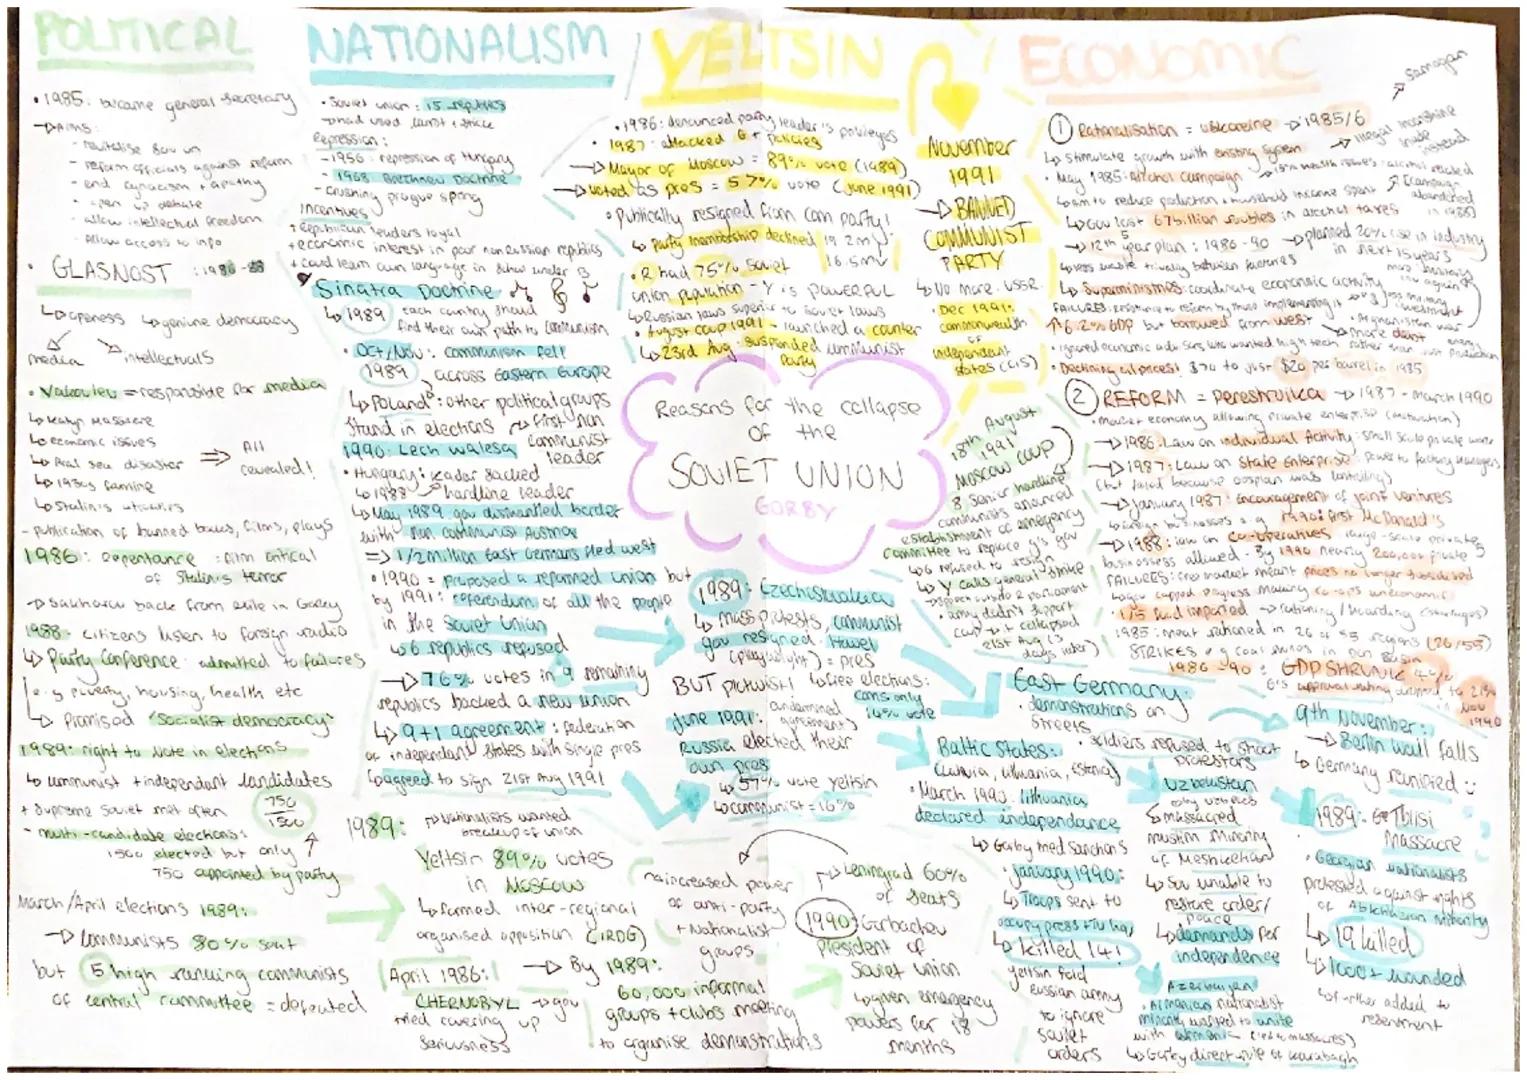 POLITICAL
• 1985: became general secretary
→ Aims:
- revitalise Sov un
- reform officials against reform
- end cynacism + apathy
- open up debate
- allow intellectual freedom
- Allow access to info
• GLASNOST : 1986 - 88
↳ openess ↳ geniune democracy
media intellectuals
• Yakovlev = responsible for media
↳ Katyn Massacre
↳ economic issues
↳ Aral sea disaster ⇒ All revealed!
↳ 1930s famine
↳ Stalin's
- publication of banned books, films, plays
1986: repentance : film critical
of Stalin's terror
→ Sakharov back from exile in Gorky
1988: citizens listen to foreign radio
↳ Party Conference: admitted to failures
e.g poverty, housing, health etc
↳ Promised 'Socialist democracy'
1989: right to vote in elections
↳ communist + independent candidates
+ Supreme Soviet met often 750/1500
- multi-candidate elections:
1500 elected but only
750 appointed by party
March/April elections 1989:
→ Communists 80% seat
but 5 high ranking communists
of central committee = defeated
NATIONALISM
• Soviet union : 15 republics
→ had used carrot + stick
Repression:
- 1956: repression of Hungary
- 1968 Brezhnev Doctrine
- crushing prague spring
incentives
+ republican leaders loyal
+ economic interest in poor non russian republics
+ could learn own language in school under B
Sinatra Doctrine
↳ 1989 each country should
find their own path to communism
• Oct/Nov: communism fell
1989 across Eastern Europe
↳ POLAND: other political groups
stand in elections → first non
communist leader
1990: Lech Walesa
• Hungary: Kadar sacked
↳ 1988 hardline leader
↳ May 1989 gov dismantled border
with non communist Austria
⇒ 1/2 million East Germans fled west
• 1990 = proposed a reformed union but
by 1991: referendum of all the people
in the Soviet Union
↳ 6 republics refused
→ 76% votes in 9 remaining
republics backed a new union
↳ 9+1 agreement: federation
of independant states with single pres
↳ agreed to sign 21st Aug 1991
1989: → nationalists wanted
breakup of union
Yeltsin 89% votes
in Moscow
↳ formed inter-regional
organised opposition (IRDG)
April 1986:
CHERNOBYL → gov
tried covering up
seriousness
→ By 1989:
60,000 informal
groups + clubs meeting
to organise demonstrations
YELTSIN
• 1986: denounced party leader's privileges
• 1987: attacked G + policies
→ Mayor of Moscow = 89% vote (1989)
→ voted as pres = 57% vote (June 1991)
• Publically resigned from com party!
↳ party membership declined 19.2m
16.5m
• R had 75% Soviet
union population - Y is POWERFUL
↳ Russian laws superior to Soviet laws
• August coup 1991 - launched a counter
↳ 23rd Aug: suspended communist
party
November
1991
→ BANNED
COMMUNIST
PARTY
↳ No more USSR
• Dec 1991:
commonwealth
of
independent
states (CIS)
Reasons for the collapse
of the
SOVIET UNION
GORBY
18th August
1991
MOSCOW COUP
8 senior hardline
communists anounced
establishment of emergency
committee to replace g's gov
↳ G refused to resign
↳ Y calls general strike
→ speech outside R parliament
• army didn't support
coup → it collapsed
21st Aug (3
days later)
1989: Czechoslovakia
↳ mass protests, communist
gov resigned. Havel
(playwright) = pres
BUT plot twist!
↳ free elections:
coms only
14% vote
undermined
agreements
June 1991:
Russia elected their
own pres
↳ 57% vote Yeltsin
↳ communist = 16%
→ increased power
of anti-party
+ Nationalist
groups
→ Leningrad 60%
of seats
1990: Gorbachev
president of
Soviet union
↳ given emergency
powers for 18
months
ECONOMIC
① Rationalisation = uskorenie → 1985/6
→ Samogan
→ illegal moonshine
made
instead
↳ Stimulate growth with existing system
• May 1985: Alcohol campaign → 15% health issues: alcohol related
(campaign
abandoned
in 1988)
↳ aim to reduce production + household income spent
↳ Gov lost 67 billion roubles in alcohol taxes
→ 12th 5 year plan: 1986-90 → planned 20% rise in industry
in next 15 years
↳ less rivalry between factories
↳ Superministries: coordinate economic activity
FAILURES: resistance to reform by those implementing it
• Afghanistan war
↑ 6.2% GDP but borrowed from west → more debt
• ignored economic advisors who wanted high tech rather than just production
• Declining oil prices! $70 to just $20 per barrel in 1985
② REFORM = perestroika → 1987 - March 1990
• market economy allowing private enterprise (motivation)
→ 1986: Law on individual Activity: small scale private work
→ 1987: Law on State Enterprise: power to factory managers
(but failed because gosplan was controlling)
→ January 1987: encouragement of joint ventures
↳ foreign businesses e.g 1990: first McDonald's
→ 1988: law on co-operatives large-scale private
businesses allowed. By 1990 nearly 200,000 private
FAILURES: free market meant prices no longer subsidised
↳ gov capped prices making co-ops uneconomic
1/5 food imported → rationing/hoarding (shortages)
1988: meat rationed in 26 of 55 regions (26/55)
STRIKES e.g coal mines in Don Basin
1986 - 90: GDP SHRUNK 4%
G's approval rating dropped to 21%
in Nov
1990
East Germany:
• demonstrations on
streets
• Soldiers refused to shoot
protestors
9th November:
→ Berlin wall falls
↳ Germany reunited :)
Baltic States:
(Latvia, Lithuania, Estonia)
• March 1990: Lithuania
declared independance
↳ Gorby tried sanctions
• January 1990:
↳ Troops sent to
occupy press + TV HQ
↳ killed 14!
Yeltsin told
russian army
to ignore
soviet
orders
Uzbekistan
massacred
muslim minority
of Meskhetian
↳ Sov unable to
restore order/
peace
↳ demands for
independence
Azerbaijan
• Armenian nationalist
minority wanted to unite
with Armenia (led to massacres)
↳ Gorby direct rule of Karabagh
1989: Tblisi
Massacre
• Georgian nationalists
protested against rights
of Abkhazian minority
↳ 19 killed
↳ 1000+ wounded
↳ further added to
resentment